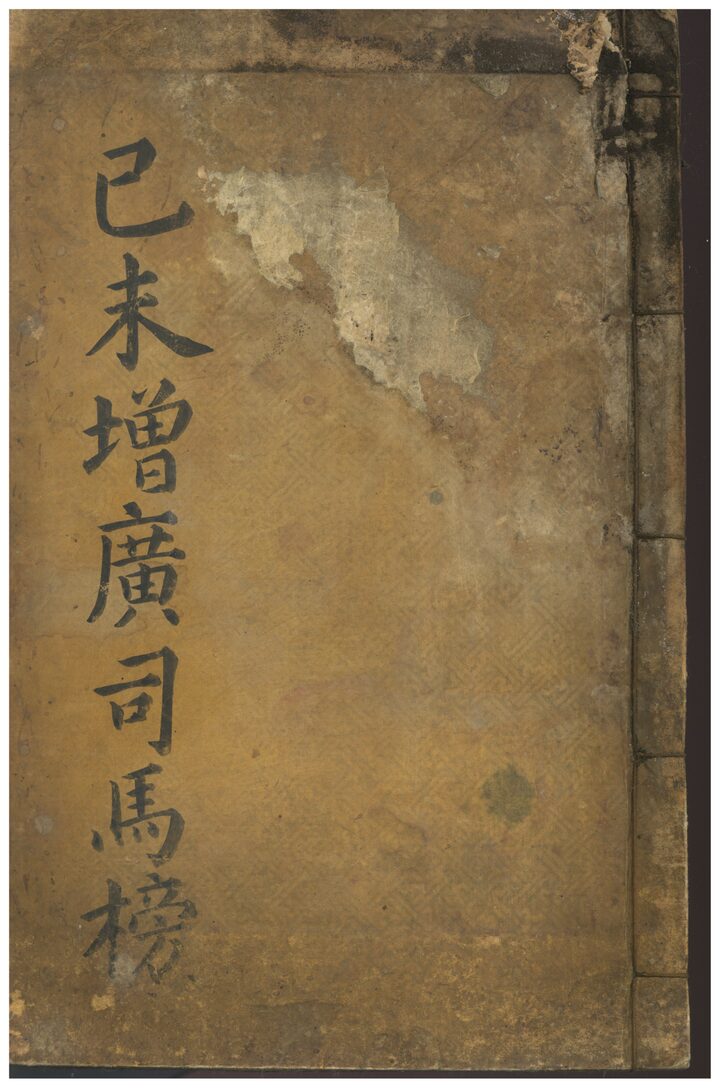 己未增廣司馬榜